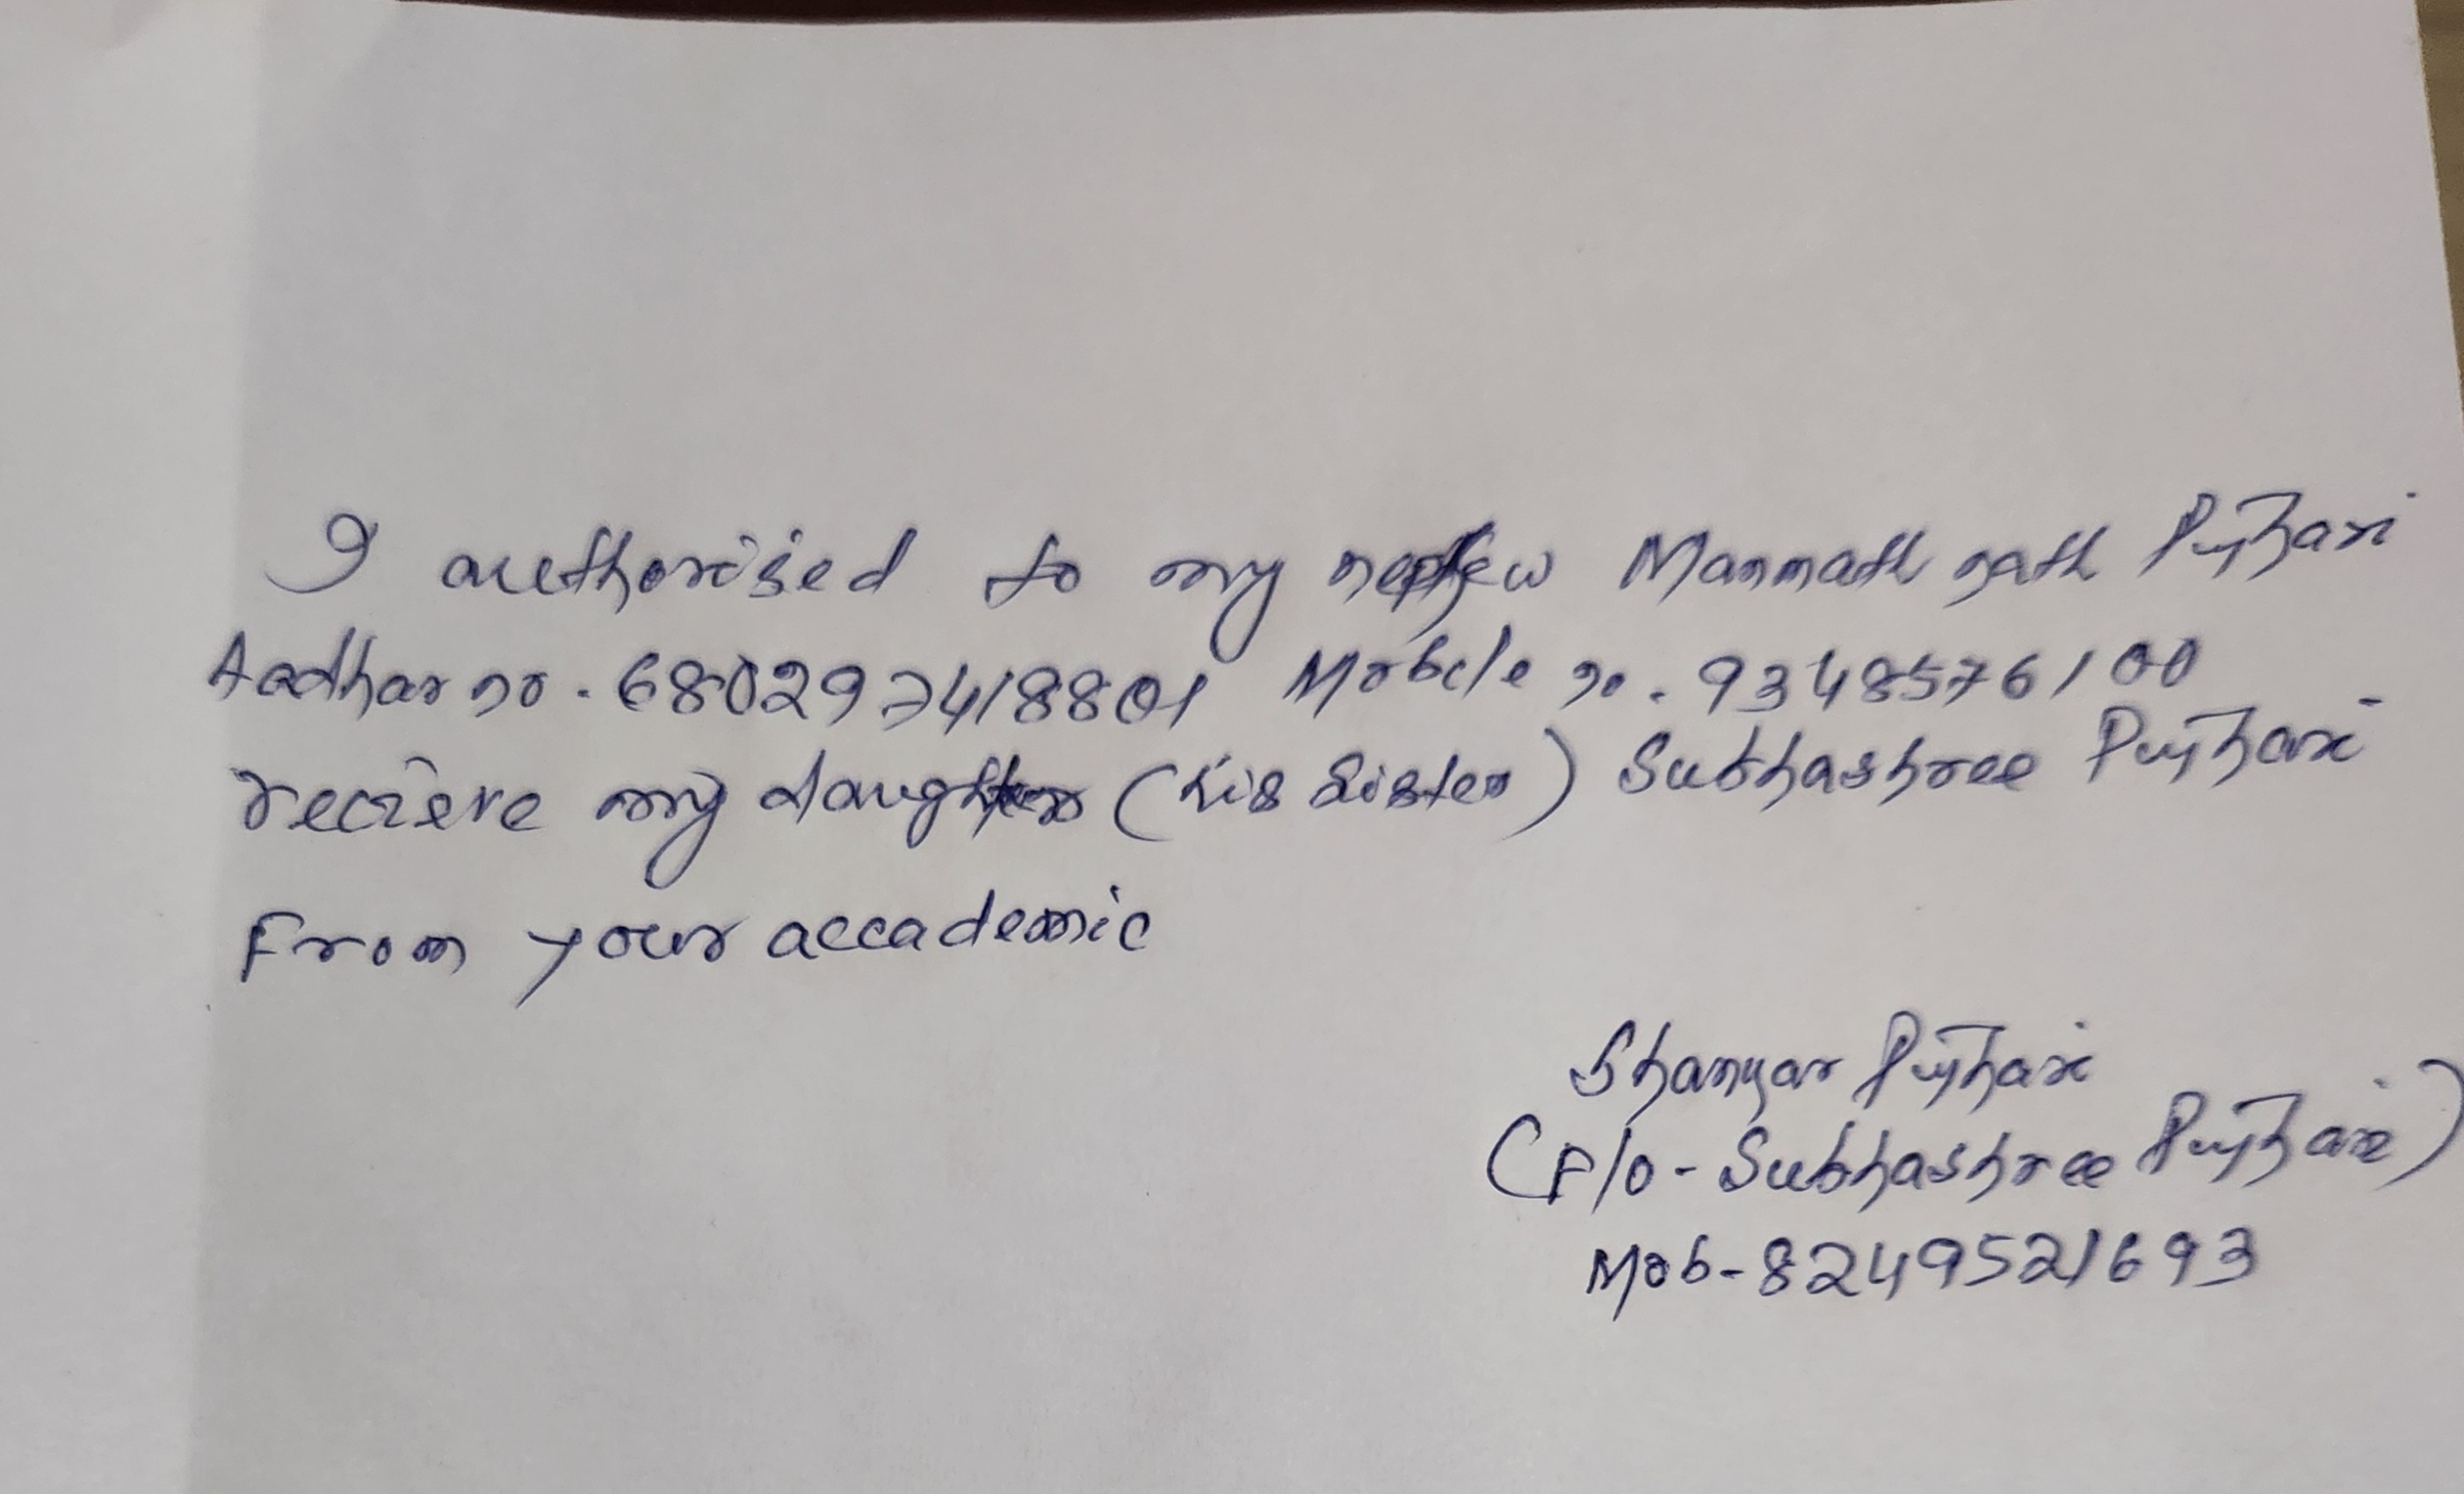 I authorised to my nephew Manmath nath Pujhari
Aadhar no. 680297418801 Mobile no. 9348576100
recieve my daughter (his sister) Subhashree Pujhari
From your accademic
Shankar Pujhari
(F/o- Subhashree Pujhari)
Mob- 8249521693